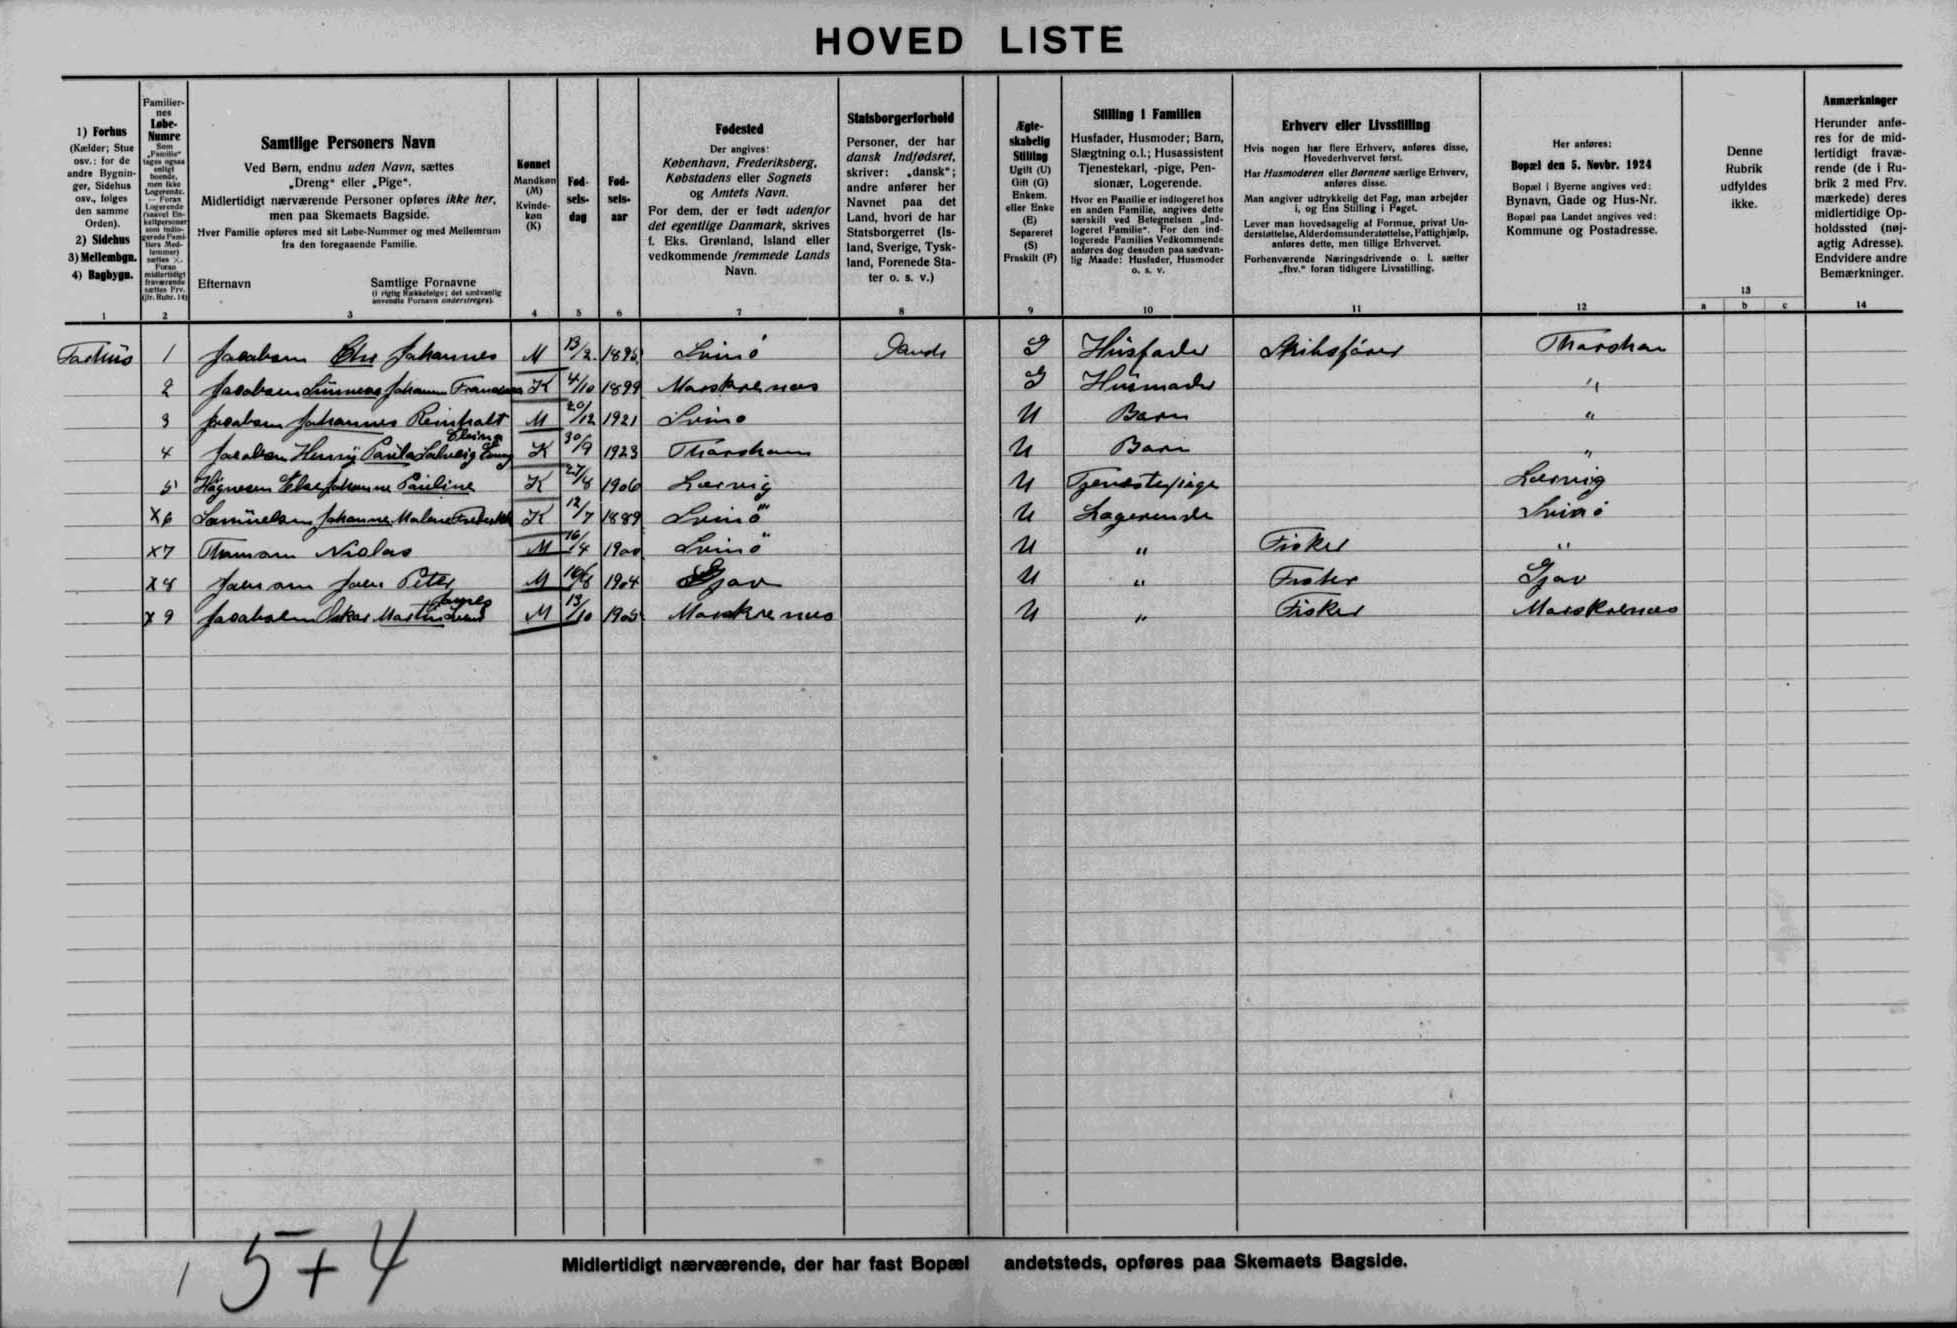 HOVED LISTE
1) Forhus
(Kælder; Stue
osv.: for de
andre Bygnin-
ger, Sidehus
osv., følges
den samme
Orden).
2) Sidehus
3) Mellembgn.
4) Bagbygn.
1
Familier-
nes
Løbe-
Numre
Som
„Familie"
tages ogsaa
enligt
boende,
men ikke
Logerende.
— Foran
Logerende
(saavel En-
keltpersoner
som indlo-
gerede Fami-
liers Med-
lemmer)
sættes ×.
Foran
midlertidigt
fraværende
sættes Frv.
(jfr. Rubr. 14)
2
Samtlige Personers Navn
Ved Børn, endnu uden Navn, sættes
„Dreng" eller „Pige".
Midlertidigt nærværende Personer opføres ikke her,
men paa Skemaets Bagside.
Hver Familie opføres med sit Løbe-Nummer og med Mellemrum
fra den foregaaende Familie.
Efternavn Samtlige Fornavne
(i rigtig Rækkefølge; det sædvanlig
anvendte Fornavn understreges).
3
Kønnet
Mandkøn
(M)
Kvinde-
køn
(K)
4
Fød-
sels-
dag
5
Fød-
sels-
aar
6
Fødested
Der angives:
København, Frederiksberg,
Købstadens eller Sognets
og Amtets Navn.
For dem, der er født udenfor
det egentlige Danmark, skrives
f. Eks. Grønland, Island eller
vedkommende fremmede Lands
Navn.
7
Statsborgerforhold
Personer, der har
dansk Indfødsret,
skriver: „dansk";
andre anfører her
Navnet paa det
Land, hvori de har
Statsborgerret (Is-
land, Sverige, Tysk-
land, Forenede Sta-
ter o. s. v.)
8
Ægte-
skabelig
Stilling
Ugift (U)
Gift (G)
Enkem.
eller Enke
(E)
Separeret
(S)
Fraskilt (F)
9
Stilling i Familien
Husfader, Husmoder; Barn,
Slægtning o.l.; Husassistent
Tjenestekarl, -pige, Pen-
sionær, Logerende.
Hvor en Familie er indlogeret hos
en anden Familie, angives dette
særskilt ved Betegnelsen „Ind-
logeret Familie". For den ind-
logerede Families Vedkommende
anføres dog desuden paa sædvan-
lig Maade: Husfader, Husmoder
o. s. v.
10
Erhverv eller Livsstilling
Hvis nogen har flere Erhverv, anføres disse,
Hovederhvervet først.
Har Husmoderen eller Børnene særlige Erhverv,
anføres disse.
Man angiver udtrykkelig det Fag, man arbejder
i, og Ens Stilling i Faget.
Lever man hovedsagelig af Formue, privat Un-
derstøttelse, Alderdomsunderstøttelse, Fattighjælp,
anføres dette, men tillige Erhvervet.
Forhenværende Næringsdrivende o. l. sætter
„fhv." foran tidligere Livsstilling.
11
Her anføres:
Bopæl den 5. Novbr. 1924
Bopæl i Byerne angives ved:
Bynavn, Gade og Hus-Nr.
Bopæl paa Landet angives ved:
Kommune og Postadresse.
12
Denne
Rubrik
udfyldes
ikke.
13
a b c
Anmærkninger
Herunder anfø-
res for de mid-
lertidigt fravæ-
rende (de i Ru-
brik 2 med Frv.
mærkede) deres
midlertidige Op-
holdssted (nøj-
agtig Adresse).
Endvidere andre
Bemærkninger.
14
Forhus 1 Jacobsen Johannes M 13/2 1895 Svinö Dansk G Husfader Skibsförer Thorshavn
2 Jacobsen K 4/10 1899 Morskrenæs G Husmoder "
3 Jacobsen Johannes M 20/12 1921 Svino U Barn "
4 Jacobsen Henny Paula Solveig K 30/9 1923 Thorshavn U Barn "
5 Högnesen Else Johanne Pauline K 27/8 1906 Lervig U Tjenestepige Lervig
X6 Samuelsen Johanne Malene K 12/7 1889 Svinö U Logerende Svinö
X7 Thomsen Niclas M 16/4 1900 Svinö U " Fisker "
X8 Joensen Joen Peter M 16/8 1904 Gjov U " Fisker Gjov
X9 Jacobsen Oskar Martin M 13/10 1905 Morskrenæs U " Fisker Morskrenæs
Midlertidigt nærværende, der har fast Bopæl andetsteds, opføres paa Skemaets Bagside.
5 + 4